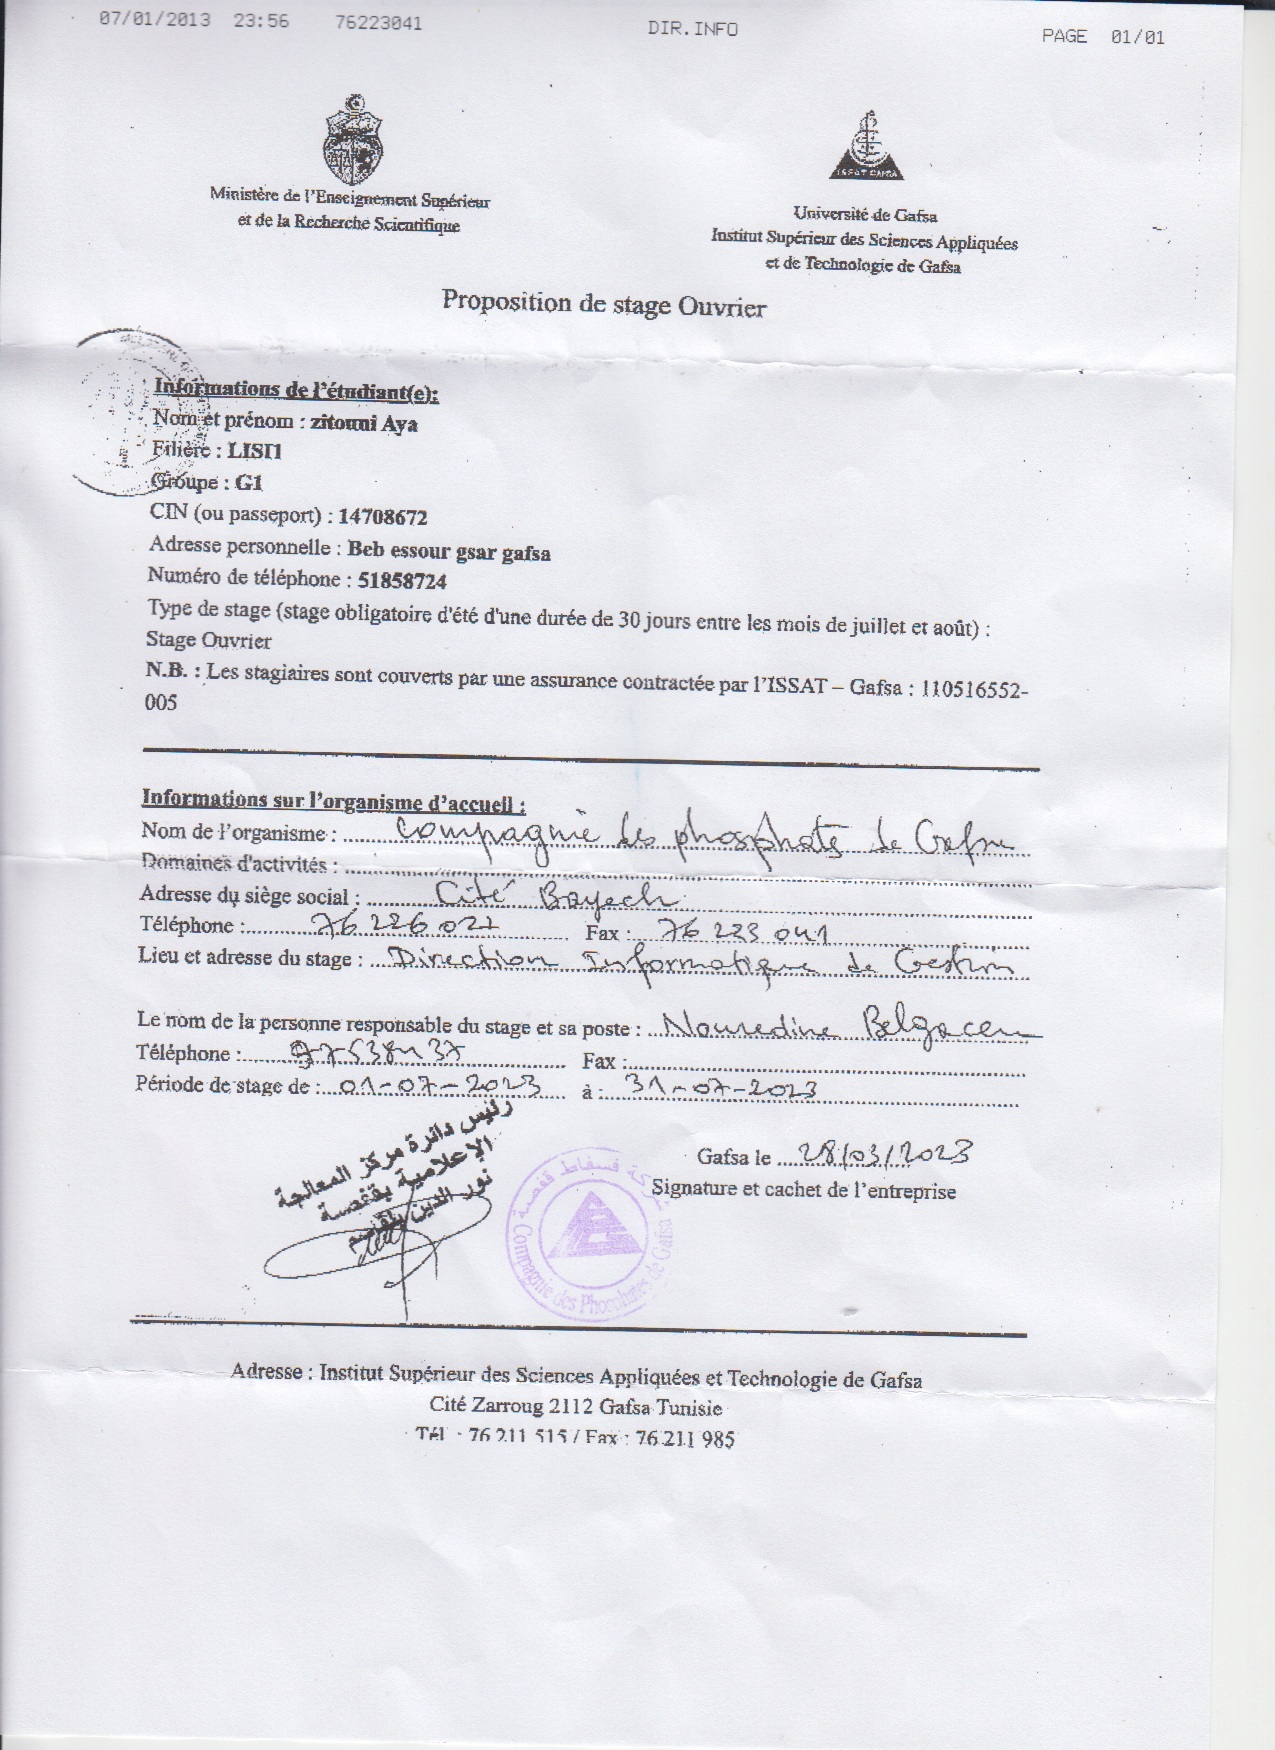 07/01/2013 23:56 76223041 DIR.INFO PAGE 01/01
Ministère de l'Enseignement Supérieur
et de la Recherche Scientifique
ISSAT GAFSA
Université de Gafsa
Institut Supérieur des Sciences Appliquées
et de Technologie de Gafsa
Proposition de stage Ouvrier
Informations de l'étudiant(e):
Nom et prénom : zitouni Aya
Filière : LISI1
Groupe : G1
CIN (ou passeport) : 14708672
Adresse personnelle : Beb essour gsar gafsa
Numéro de téléphone : 51858724
Type de stage (stage obligatoire d'été d'une durée de 30 jours entre les mois de juillet et août) :
Stage Ouvrier
N.B. : Les stagiaires sont couverts par une assurance contractée par l'ISSAT – Gafsa : 110516552-
005
Informations sur l'organisme d'accueil :
Nom de l'organisme : Compagnie des phosphates de Gafsa
Domaines d'activités :
Adresse du siège social : Cité Bayech
Téléphone : 76 226 022 Fax : 76 223 041
Lieu et adresse du stage : Direction Informatique de Gestion
Le nom de la personne responsable du stage et sa poste : Nouredine Belgacem
Téléphone : Fax :
Période de stage de : 01-07-2023 à : 31-07-2023
رئيس دائرة مركز المعالجة
الإعلامية بقفصة
نور الدين بلقاسم
Gafsa le 28/03/2023
Signature et cachet de l'entreprise
شركة فسفاط قفصة
Compagnie des Phosphates de Gafsa
Adresse : Institut Supérieur des Sciences Appliquées et Technologie de Gafsa
Cité Zarroug 2112 Gafsa Tunisie
Tél : 76 211 515 / Fax : 76 211 985